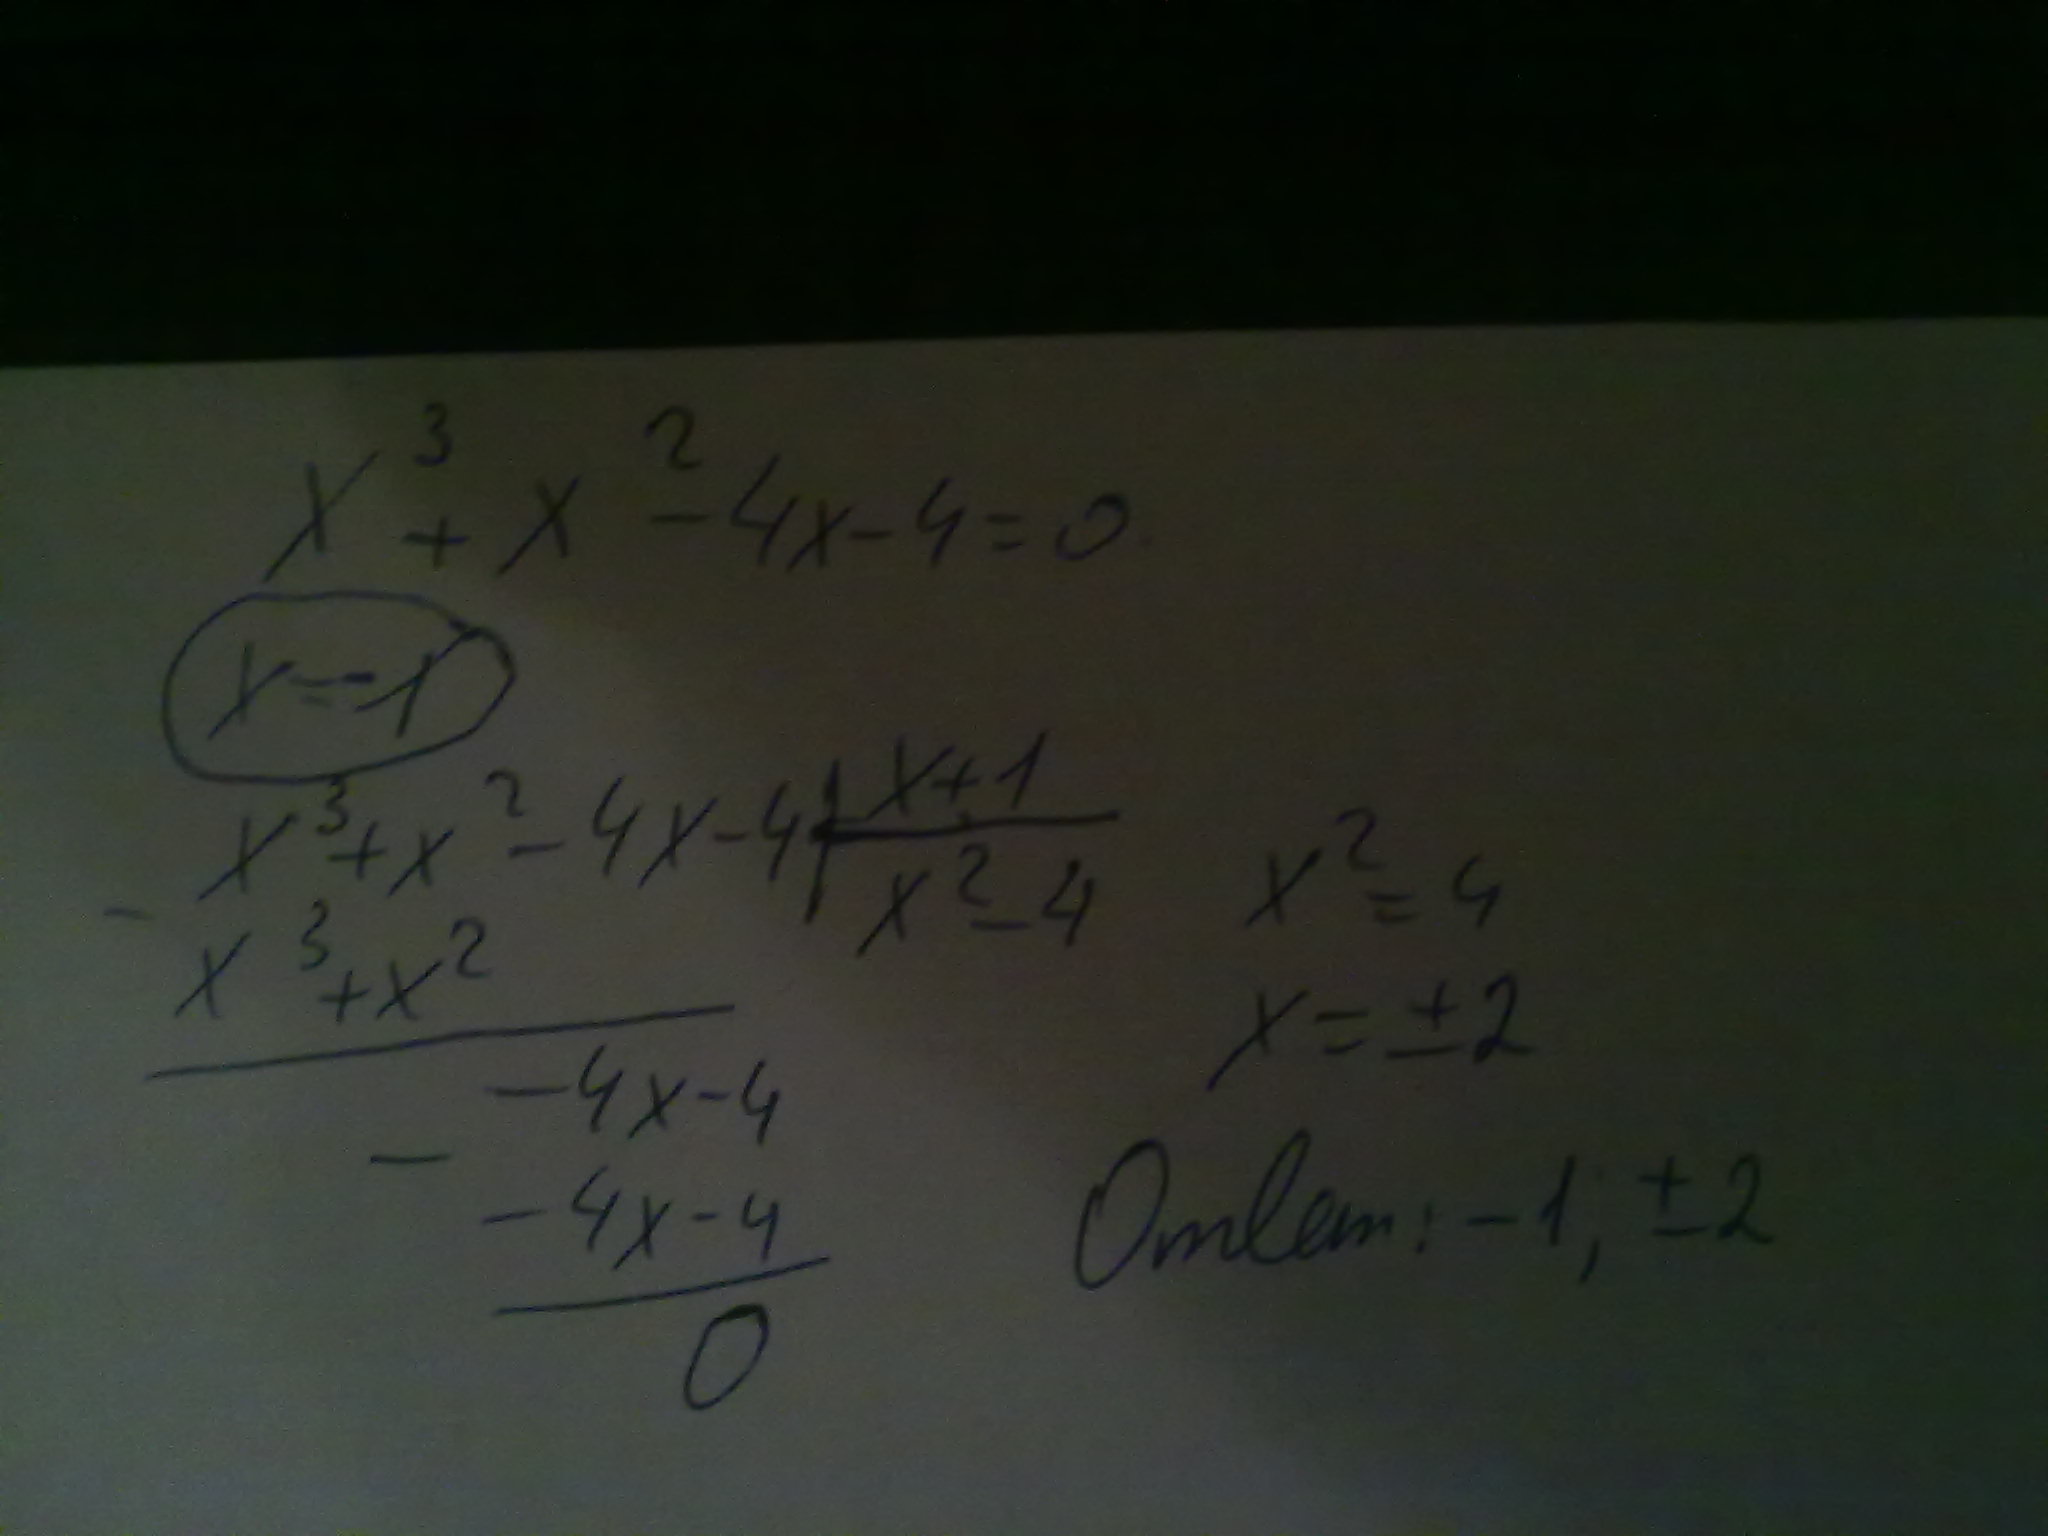 x³ + x² - 4x - 4 = 0
x = -1
x³ + x² - 4x - 4 | x + 1
- x³ + x²
x² - 4
-4x - 4
- -4x - 4
0
x² = 4
x = ±2
Ответ: -1; ±2